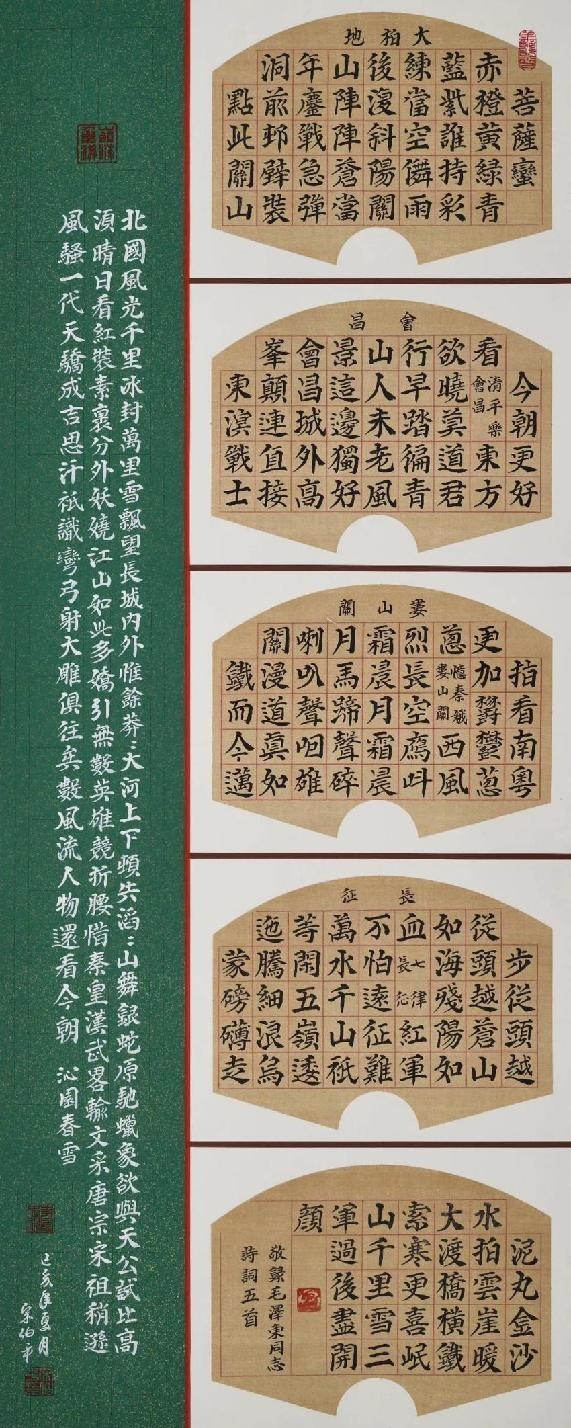 大柏地
菩薩蠻
赤橙黄緑青
藍紫誰持彩
練當空儛雨
後復斜陽關
山陣陣蒼當
年鏖戰急彈
洞前邨壁裝
點此關山
會昌
今朝更好
看清平樂會昌東方
欲曉莫道君
行早踏徧青
山人未老風
景這邊獨好
會昌城外高
峯顛連直接
東溟戰士
婁山關
指看南粵
更加鬱鬱葱
葱憶秦娥婁山關西風
烈長空鴈叫
霜晨月霜晨
月馬蹄聲碎
喇叭聲咽雄
關漫道真如
鐵而今邁
長征
步從頭越
從頭越蒼山
如海殘陽如
血七律長征紅軍
不怕遠征難
萬水千山祇
等閒五嶺逶
迤騰細浪烏
蒙磅礴走
泥丸金沙
水拍雲崖暖
大渡橋橫鐵
索寒更喜岷
山千里雪三
軍過後盡開
顏
敬錄毛澤東同志
詩詞五首
北國風光千里冰封萬里雪飄望長城內外惟餘莽〻大河上下頓失滔〻山舞銀蛇原馳蠟象欲與天公試比高
須晴日看紅裝素裹分外妖嬈江山如此多嬌引無數英雄競折腰惜秦皇漢武畧輸文采唐宗宋祖稍遜
風騷一代天驕成吉思汗祇識彎弓射大雕俱往矣數風流人物還看今朝 沁園春雪
己亥年夏月
宋伯平